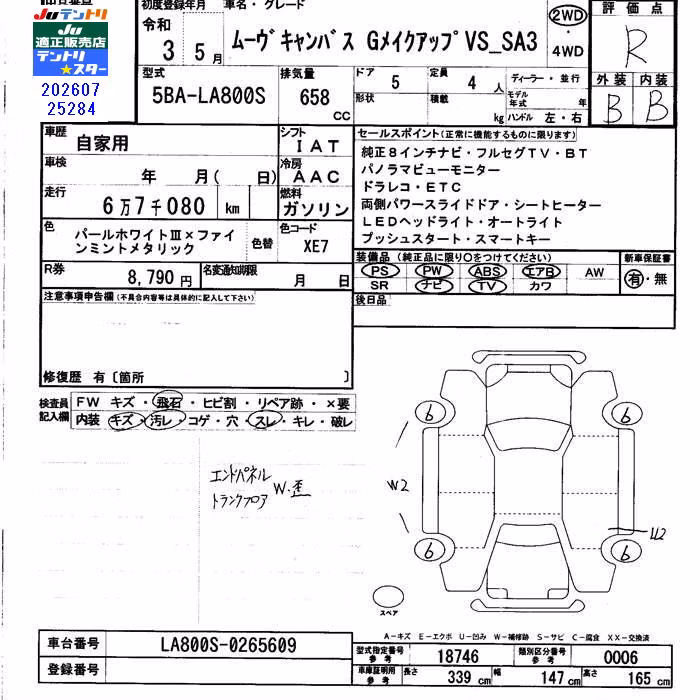 Juテントリ
Ju
適正販売店
テントリ
★スター
202607
25284
初度登録年月
令和
3 5月
車名・グレード
ムーヴキャンバス GメイクアップVS_SA3
2WD
・
4WD
評価点
R
外装 内装
B B
型式
5BA-LA800S
排気量
658
CC
ドア
5
定員
4 人
形状
積載
kg
ディーラー・並行
モデル
年式 年
ハンドル 左・右
車歴
自家用
シフト
IAT
車検
年 月( 日)
冷房
AAC
走行
6万7千080 km
燃料
ガソリン
色
パールホワイトⅢ×ファイ
ンミントメタリック
色替
色コード
XE7
R券
8,790 円
名変通知期限
月 日
セールスポイント(正常に機能するものに限ります)
純正8インチナビ・フルセグTV・BT
パノラマビューモニター
ドラレコ・ETC
両側パワースライドドア・シートヒーター
LEDヘッドライト・オートライト
プッシュスタート・スマートキー
装備品(純正品に限り○をつけてください)
PS PW ABS エアB AW
SR ナビ TV カワ
新車保証書
有・無
後日品
注意事項申告欄(不具合内容等は具体的に記入して下さい)
修復歴 有〔箇所 〕
検査員
記入欄
FW キズ・飛石・ヒビ割・リペア跡・×要
内装 キズ・汚レ・コゲ・穴・スレ・キレ・破レ
エンドパネル
トランクフロア
W・歪
6 6
W2
6 6
U2
スペア
A-キズ E-エクボ U-凹み W-補修跡 S-サビ C-腐食 XX-交換済
車台番号
LA800S-0265609
登録番号
型式指定番号
参考
18746
類別区分番号
参考
0006
車庫証明用
参考
長さ 339 cm
幅 147 cm
高さ 165 cm